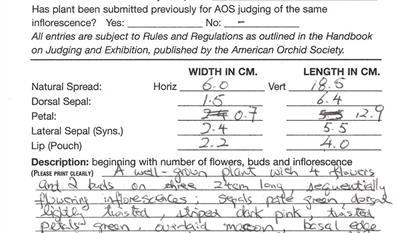 Has plant been submitted previously for AOS judging of the same
inflorescence? Yes: No: –
All entries are subject to Rules and Regulations as outlined in the Handbook
on Judging and Exhibition, published by the American Orchid Society.
WIDTH IN CM. LENGTH IN CM.
Natural Spread: Horiz 6.0 Vert 18.5
Dorsal Sepal: 1.5 6.4
Petal: 0.7 12.9
Lateral Sepal (Syns.) 2.4 5.5
Lip (Pouch) 2.2 4.0
Description: beginning with number of flowers, buds and inflorescence
(PLEASE PRINT CLEARLY) A well-grown plant with 4 flowers
and 2 buds on three 27cm long, sequentially
flowering inflorescences; sepals pale green, dorsal
lightly twisted, striped dark pink, twisted
petals green, overlaid maroon, basal edge